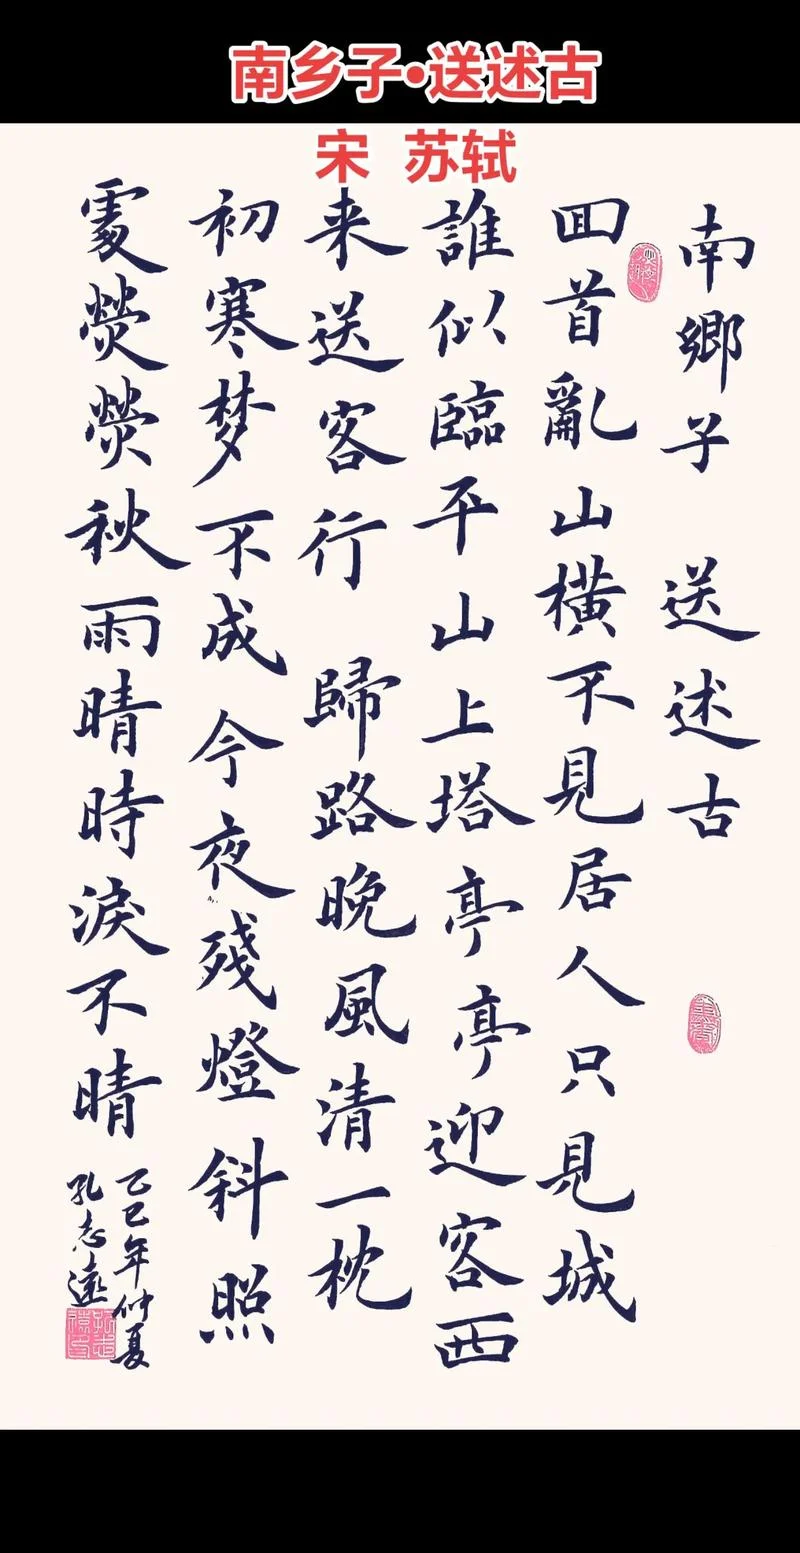 南乡子•送述古
宋 苏轼
南鄉子 送述古
囬首亂山橫不見居人只見城
誰似臨平山上塔亭亭迎客西
来送客行 歸路晚風清一枕
初寒梦不成今夜殘燈斜照
處熒熒秋雨晴時淚不晴
乙巳年仲夏
孔志遠